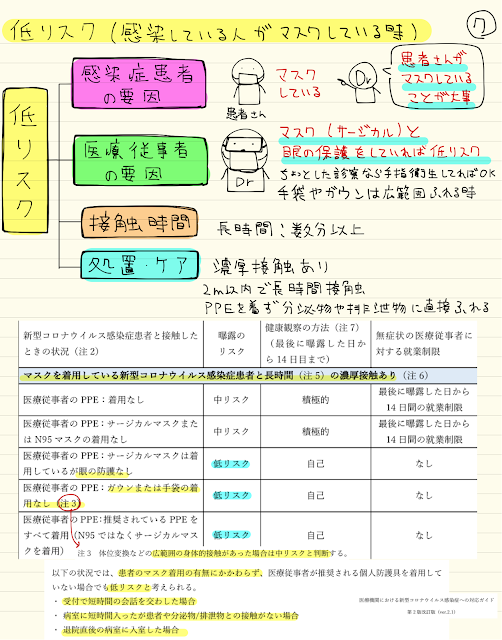 低リスク (感染している人がマスクしている時)
⑦
低リスク
感染症患者
の要因
患者さん
マスク
している
Dr
患者さんが
マスクしている
ことが大事
医療従事者
の要因
Dr
マスク (サージカル) と
眼の保護をしていれば低リスク
ちょっとした診察なら手指衛生してればOK
手袋やガウンは広範囲ふれる時
接触時間
長時間:数分以上
処置・ケア
濃厚接触あり
2m以内で長時間接触
PPEを着ず分泌物や排泄物に直接ふれる
新型コロナウイルス感染症患者と接触した
ときの状況(注2)
曝露の
リスク
健康観察の方法(注7)
(最後に曝露した日か
ら14日目まで)
無症状の医療従事者に
対する就業制限
マスクを着用している新型コロナウイルス感染症患者と長時間(注5)の濃厚接触あり(注6)
医療従事者のPPE:着用なし
中リスク
積極的
最後に曝露した日から
14日間の就業制限
医療従事者のPPE:サージカルマスクまた
はN95マスクの着用なし
中リスク
積極的
最後に曝露した日から
14日間の就業制限
医療従事者のPPE:サージカルマスクは着
用しているが眼の防護なし
低リスク
自己
なし
医療従事者のPPE:ガウンまたは手袋の着
用なし(注3)
低リスク
自己
なし
医療従事者のPPE:推奨されているPPEを
すべて着用(N95ではなくサージカルマス
クを着用)
低リスク
自己
なし
注3 体位変換などの広範囲の身体的接触があった場合は中リスクと判断する。
以下の状況では、患者のマスク着用の有無にかかわらず、医療従事者が推奨される個人防護具を着用して
いない場合でも低リスクと考えられる。
・ 受付で短時間の会話を交わした場合
・ 病室に短時間入ったが患者や分泌物/排泄物との接触がない場合
・ 退院直後の病室に入室した場合
医療機関における新型コロナウイルス感染症への対応ガイド
第2版改訂版 (ver.2.1)